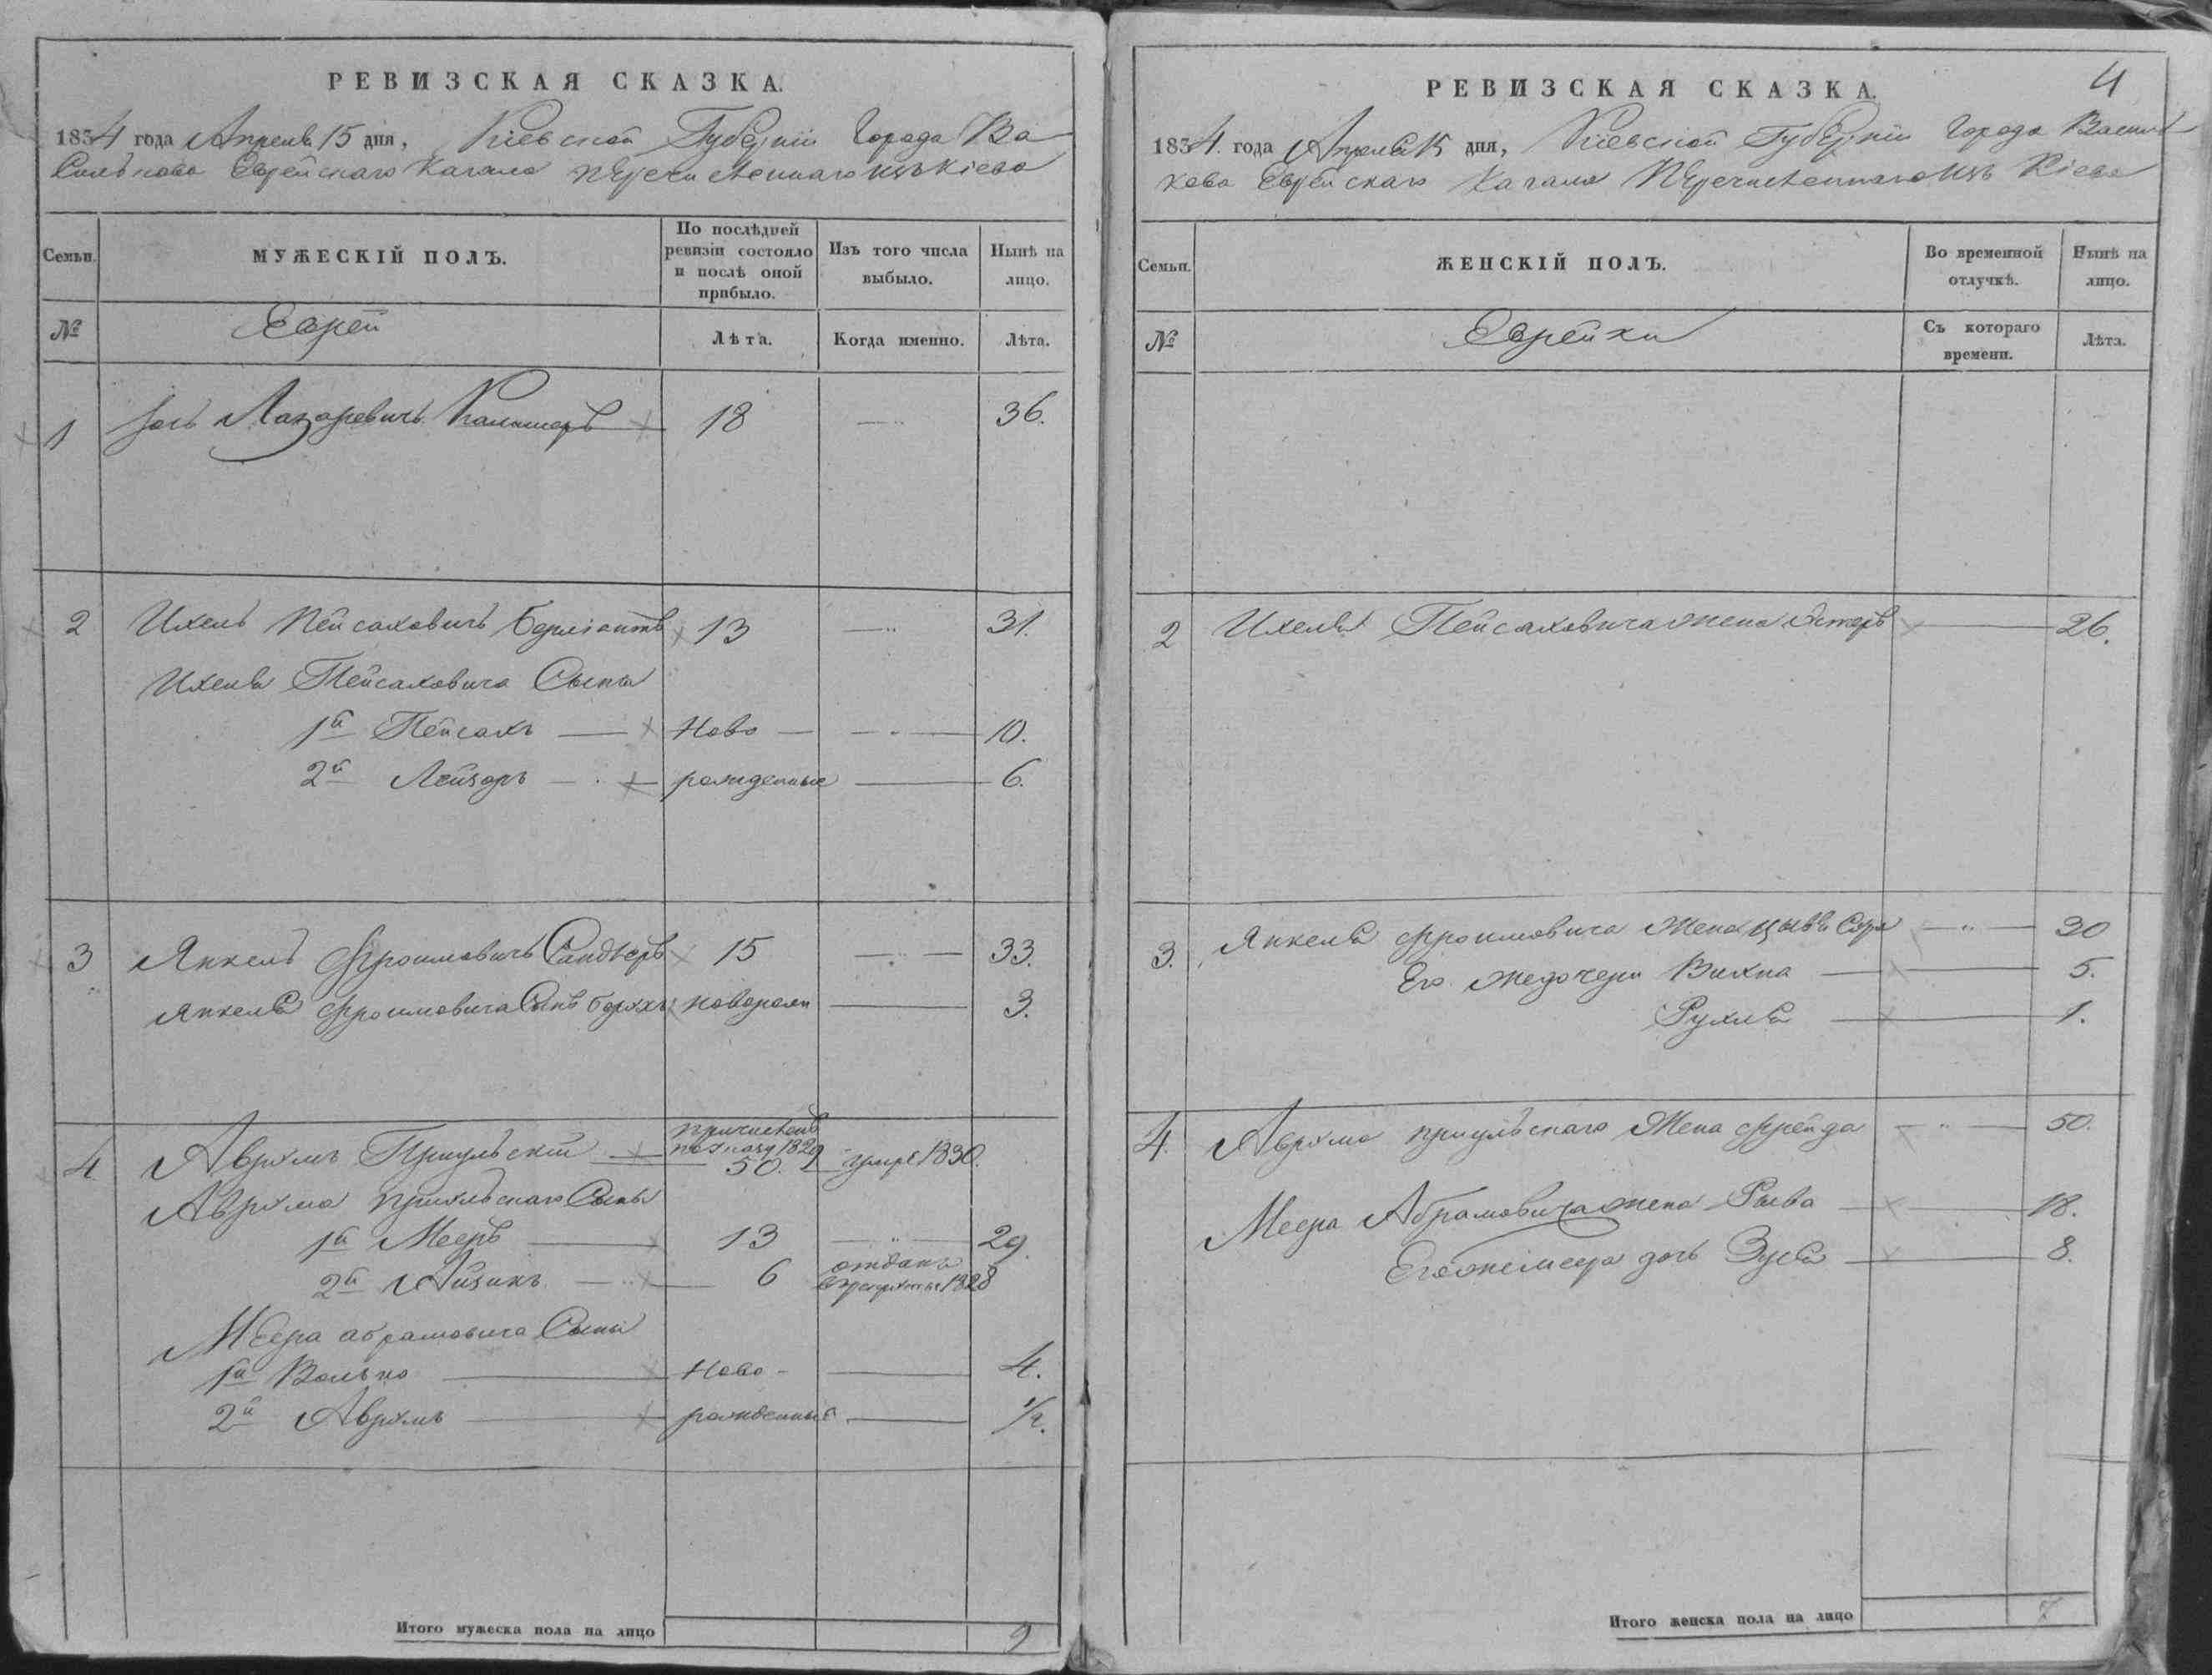 РЕВИЗСКАЯ СКАЗКА.
1834 года Апреля 15 дня, Кіевской Губерніи Города Ва
силькова Еврейскаго Кагала перечисленнаго изъ Кіева
Семьи.
МУЖЕСКІЙ ПОЛЪ.
По послѣдней ревизіи состояло и послѣ оной прибыло.
Изъ того числа выбыло.
Нынѣ на лицо.
№
Евреи
Лѣта.
Когда именно.
Лѣта.
1 Лазаревичъ 18 — 36.
2 Ихель Пейсаховичъ 13 — 31.
Ихеля Пейсаховича Сыны
1й Пейсахъ — Ново — — 10.
2й Лейзоръ — рожденные — 6.
3 Янкель Фроимовичъ Сандлеръ 15 — 33.
Янкеля Фроимовича Сынъ Борохъ новорожд — 3.
4 Аврумъ — причисленъ по указу 1829 50. умре 1830.
Аврума Сыны
1й Мееръ — 13 — 29.
2й Айзикъ — 6 отданъ в рекруты 1828
Меера абрамовича Сыны
1й Волько — Ново- — 4.
2й Аврумъ — рожденные — 1/2.
Итого мужеска пола на лицо 9
4
РЕВИЗСКАЯ СКАЗКА.
1834. года Апреля 15 дня, Кіевской Губерніи Города Василь
кова Еврейскаго Кагала Перечисленнаго изъ Кіева
Семьи.
ЖЕНСКІЙ ПОЛЪ.
Во временной отлучкѣ.
Нынѣ на лицо.
№
Еврейки
Съ котораго времени.
Лѣта.
2 Ихеля Пейсаховича жена Эстеръ — 26.
3. Янкеля Фроимовича Жена Цывя Сура — 30
Его же дочери Вихна — 5.
Рухля — 1.
4. Аврума Жена Фрейда — 50.
Меера Абрамовича жена Рыва — 18.
Его же Меера дочь Зуся — 8.
Итого женска пола на лицо 7